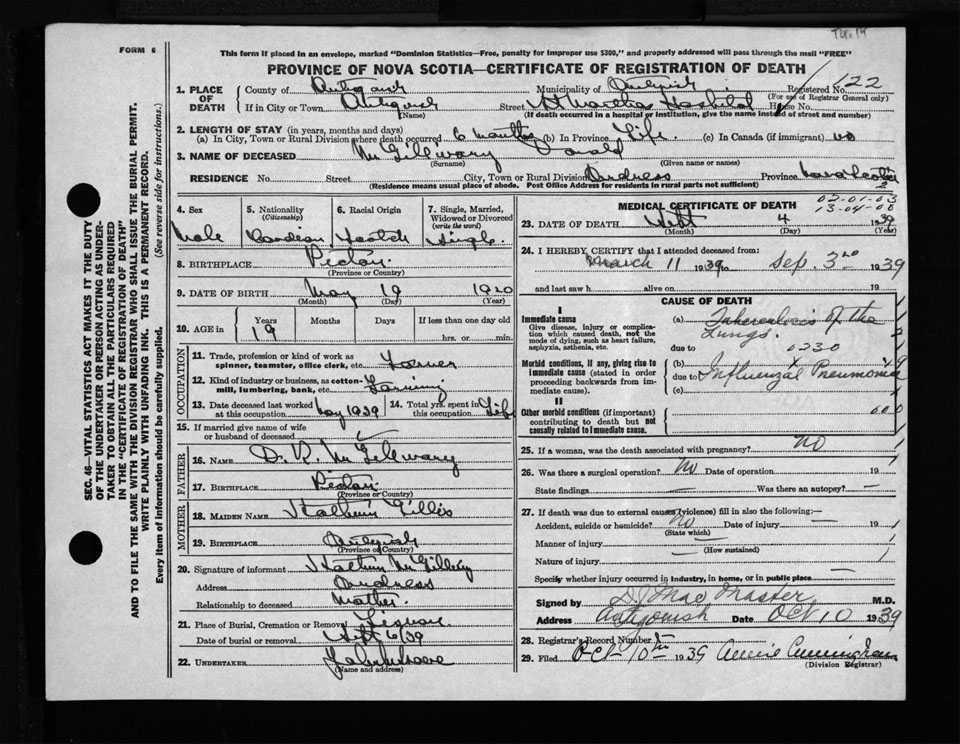 FORM 6
This form if placed in an envelope, marked "Dominion Statistics—Free, penalty for improper use $300," and properly addressed will pass through the mail "FREE"
PROVINCE OF NOVA SCOTIA—CERTIFICATE OF REGISTRATION OF DEATH
SEC. 46—VITAL STATISTICS ACT MAKES IT THE DUTY
OF THE UNDERTAKER OR PERSON ACTING AS UNDER-
TAKER TO OBTAIN ALL THE PARTICULARS REQUIRED
IN THE "CERTIFICATE OF REGISTRATION OF DEATH"
AND TO FILE THE SAME WITH THE DIVISION REGISTRAR WHO SHALL ISSUE THE BURIAL PERMIT.
WRITE PLAINLY WITH UNFADING INK. THIS IS A PERMANENT RECORD.
Every item of information should be carefully supplied. (See reverse side for instructions.)
1. PLACE OF DEATH
County of Municipality of Registered No. 122
(For use of Registrar General only)
If in City or Town Antigonish Street St Marthas Hospital House No.
(Name) (If death occurred in a hospital or institution, give the name instead of street and number)
2. LENGTH OF STAY (in years, months and days)
(a) In City, Town or Rural Division where death occurred 6 months (b) In Province Life (c) In Canada (if immigrant) no
3. NAME OF DECEASED McGillivary Donald
(Surname) (Given name or names)
RESIDENCE No. Street City, Town or Rural Division Province Nova Scotia
(Residence means usual place of abode. Post Office Address for residents in rural parts not sufficient) 2
4. Sex 5. Nationality (Citizenship) 6. Racial Origin 7. Single, Married, Widowed or Divorced (write the word)
Male Canadian Scotch Single
8. BIRTHPLACE Pictou
(Province or Country)
9. DATE OF BIRTH May 19 1920
(Month) (Day) (Year)
10. AGE in Years Months Days If less than one day old
19 hrs. or min.
OCCUPATION
11. Trade, profession or kind of work as spinner, teamster, office clerk, etc. Farmer
12. Kind of industry or business, as cotton-mill, lumbering, bank, etc. Farming
13. Date deceased last worked at this occupation May 1939 14. Total yrs. spent in this occupation Life
15. If married give name of wife or husband of deceased
FATHER
16. NAME D. R. McGillivary
17. BIRTHPLACE Pictou
(Province or Country)
MOTHER
18. MAIDEN NAME Gillis
19. BIRTHPLACE Antigonish
(Province or Country)
20. Signature of informant
Address
Relationship to deceased Mother
21. Place of Burial, Cremation or Removal
Date of burial or removal Sept 6/39
22. UNDERTAKER
MEDICAL CERTIFICATE OF DEATH
23. DATE OF DEATH Sept 4 1939
(Month) (Day) (Year)
24. I HEREBY CERTIFY that I attended deceased from:
March 11 1939 to Sep. 3rd 1939
and last saw h alive on 19
CAUSE OF DEATH
I
Immediate cause (a) Tuberculosis of the
Give disease, injury or complication which caused death, not the mode of dying, such as heart failure, asphyxia, asthenia, etc.
Lungs.
due to 0230
Morbid conditions, if any, giving rise to immediate cause (stated in order proceeding backwards from immediate cause).
(b)
due to Influenzal Pneumonia
(c)
II
Other morbid conditions (if important) contributing to death but not causally related to immediate cause.
25. If a woman, was the death associated with pregnancy? NO
26. Was there a surgical operation? No Date of operation 19
State findings — Was there an autopsy? —
27. If death was due to external causes (violence) fill in also the following:—
Accident, suicide or homicide? NO Date of injury — 19
(State which)
Manner of injury
(How sustained)
Nature of injury
Specify whether injury occurred in industry, in home, or in public place —
Signed by D J MacMaster M.D.
Address Antigonish Date Oct 10 1939
28. Registrar's Record Number
29. Filed Oct 10th 1939 Annie Cunningham
(Division Registrar)